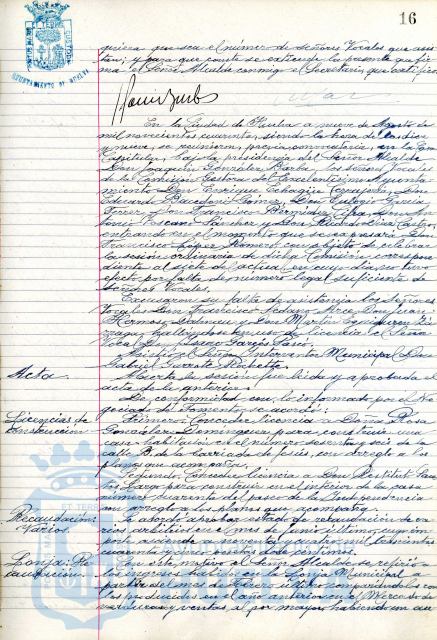 16
AYUNTAMIENTO DE HUELVA
quiera que sea el número de señores Vocales que asis-
tan; y para que conste se extiende la presente que fir-
ma el Señor Alcalde conmigo el Secretario que certifico
En la Ciudad de Huelva a nueve de Agosto de
mil novecientos cuarenta, siendo la hora de las diez
y nueve, se reunieron, previa convocatoria, en la Casa
Capitular, bajo la presidencia del Señor Alcalde
Don Joaquín González Barba, los señores Vocales
de la Comisión Gestora del Excelentísimo Ayunta-
miento Don Enrique Echagüe Don
Eduardo Gómez, Don Eulogio García
Pérez, Don Francisco Bermúdez Don An-
tonio Toscano Sánchez y Don Ricardo Oliva Castro,
entrando en el momento que se expresará Don
Francisco López Romero con objeto de celebrar
la sesión ordinaria de dicha Comisión correspon-
diente al siete del actual, en cuyo día no tuvo
efecto por falta de número legal suficiente de
Señores Vocales.
Excusaron su falta de asistencia los Señores
Vocales Don Francisco Don Juan
y Don Martín
hallándose en uso de licencia el Señor
Vocal Don Garcés
Asistió el Señor Interventor Municipal Don
Gabriel
Acta
Abierta la sesión fué leída y aprobada el
acta de la anterior.
De conformidad con lo informado por el Ne-
gociado de Fomento se acordó:
Licencias de
construcción
Primero. Conceder licencia a Doña Rosa
González Domínguez para construir una
casa habitación en el número sesenta y seis de la
calle B. de la barriada de Jesús, con arreglo a los
planos que acompaña.
Segundo. Conceder licencia a Don Restituto
para construir en el interior de la casa
número cuarenta del paseo de la Independencia
con arreglo a los planos que acompaña.
Recaudación:
Varios.
Se acordó aprobar estado de recaudación de va-
rios arbitrios en el mes de junio último, cuyo im-
porte asciende a noventa y cuatro mil trescientas
cuarenta y tres pesetas doce céntimos.
Lonja: Re-
caudación.
Con este motivo el Señor Alcalde se refirió a
los ingresos habidos en la Lonja Municipal a
partir del mes de Enero último comparándolos con
los producidos en el año anterior en el Mercado de
verduras y ventas al por mayor habiendo un au-